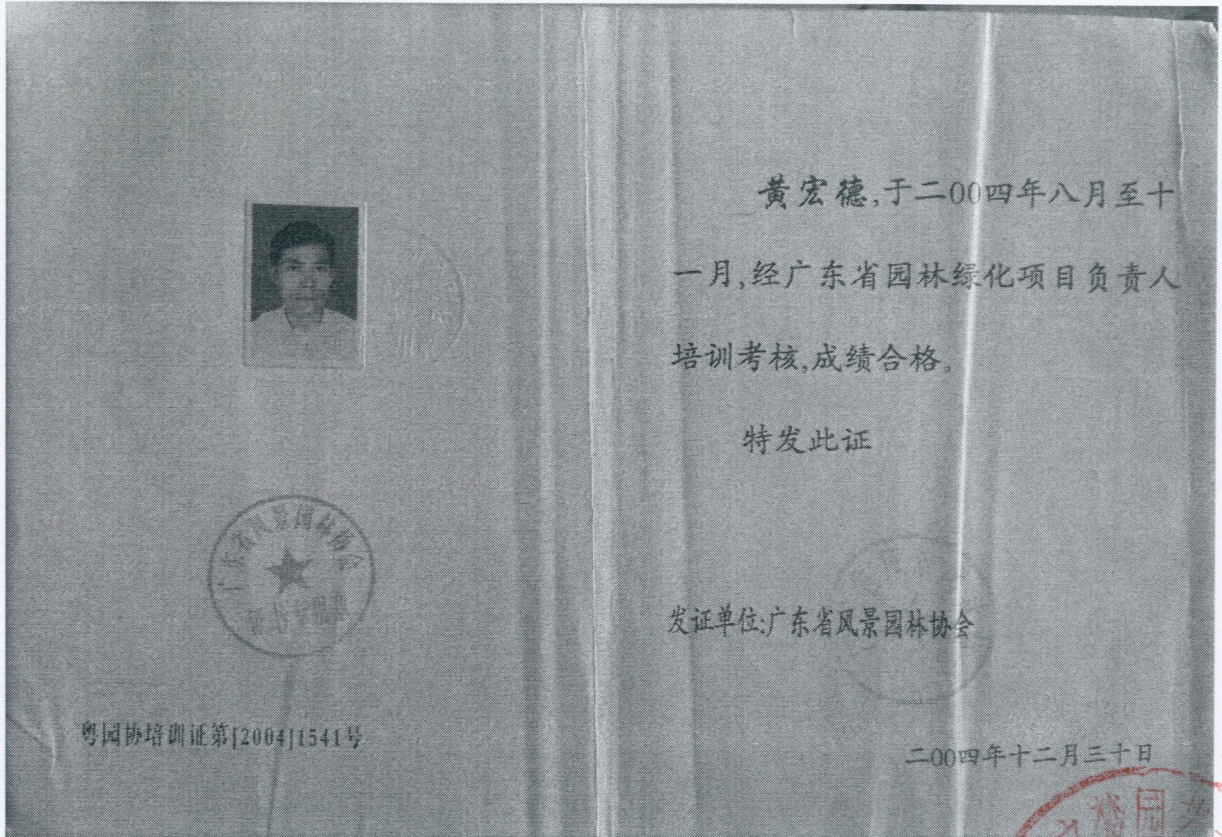 广东省风景园林协会
粤园协培训证第[2004]1541号
黄宏德,于二00四年八月至十
一月,经广东省园林绿化项目负责人
培训考核,成绩合格。
特发此证
发证单位:广东省风景园林协会
二00四年十二月三十日